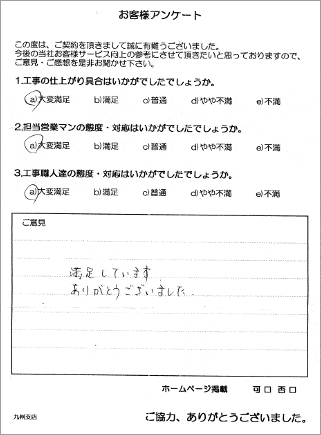 お客様アンケート
この度は、ご契約を頂きまして誠に有難うございました。
今後の当社お客様サービス向上の参考にさせて頂きたいと思っておりますので、
ご意見・ご感想を是非お聞かせ下さい。
1.工事の仕上がり具合はいかがでしたでしょうか。
a)大変満足 b)満足 c)普通 d)やや不満 e)不満
2.担当営業マンの態度・対応はいかがでしたでしょうか。
a)大変満足 b)満足 c)普通 d)やや不満 e)不満
3.工事職人達の態度・対応はいかがでしたでしょうか。
a)大変満足 b)満足 c)普通 d)やや不満 e)不満
ご意見
満足しています
ありがとうございました
ホームページ掲載 可口 否口
九州支店
ご協力、ありがとうございました。